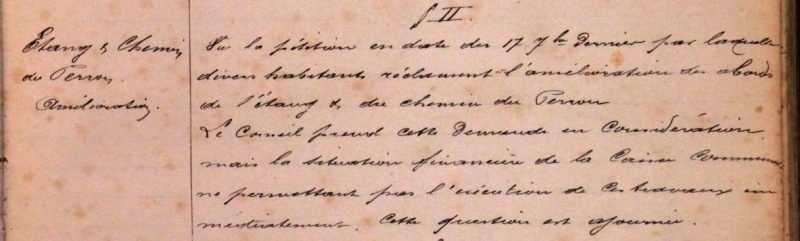 § II
Etang & Chemin
du Perron.
Amélioration.
Vu la pétition en date du 17 7bre dernier par laquelle
divers habitants réclament l'amélioration des abords
de l'étang & du chemin du Perron
Le Conseil prend cette demande en considération
mais la situation financière de la Caisse Communale
ne permettant pas l'exécution de ces travaux im
médiatement. Cette question est ajournée.